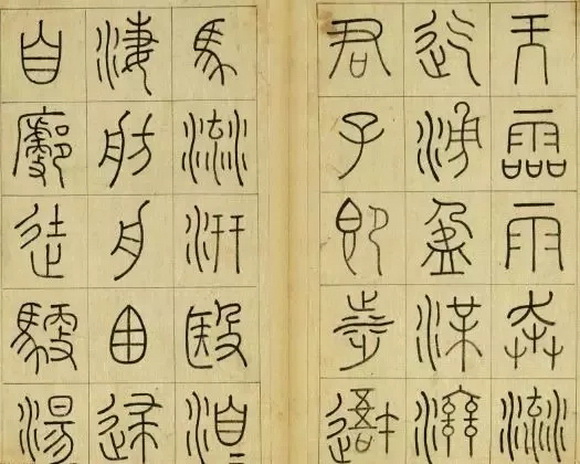 天霝雨奔流
迄湧盈渫濟
君子即涉
馬流汧殹洎
淒舫舟逮
自廓徒馭湯